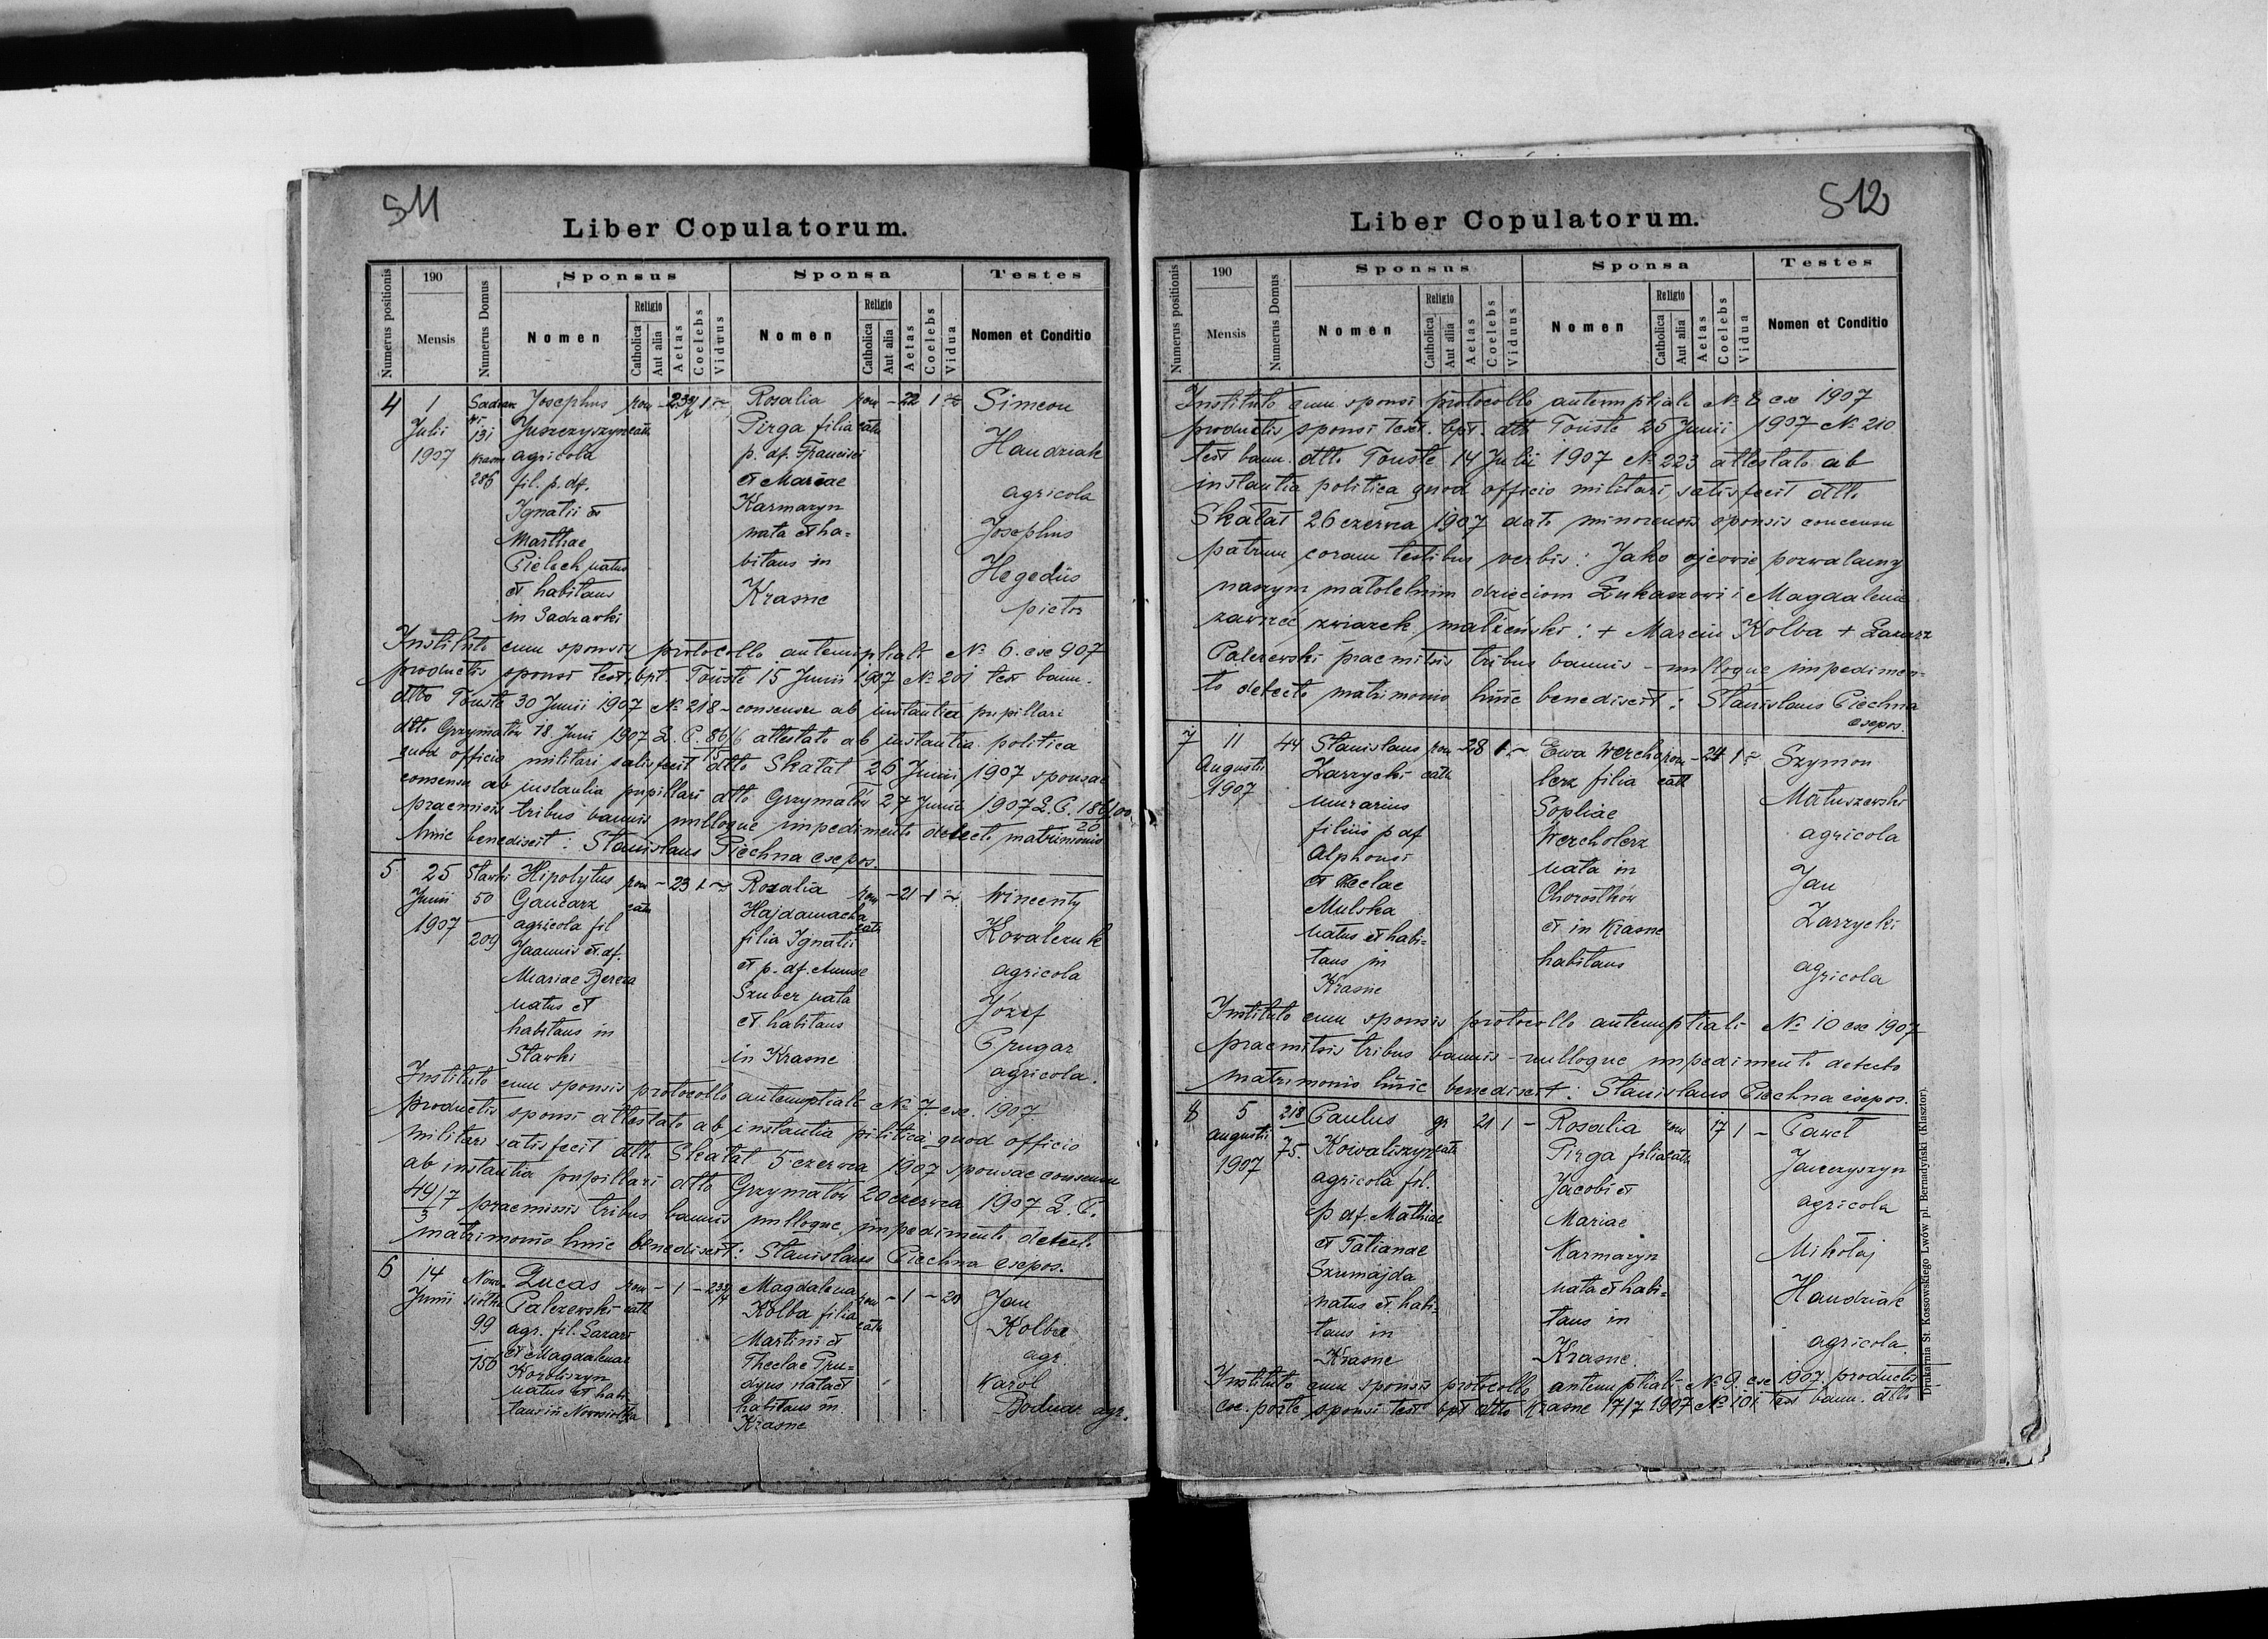 511
Liber Copulatorum.
Numerus positionis
190
Mensis
Numerus Domus
Sponsus
Nomen
Religio
Catholica
Aut alia
Aetas
Coelebs
Viduus
Sponsa
Nomen
Religio
Catholica
Aut alia
Aetas
Coelebs
Vidua
Testes
Nomen et Conditio
4
1
Julii
1907
131
286
Josephus
Juszczyszyn
agricola
fil. p. df.
Ignatii et
Marthae
Pielech natus
et habitans
in Sadzawki
rom
cath
Rosalia
Pirga filia
p. df. Francisci
et Mariae
Karmazyn
nata et ha=
bitans in
Krasne
rom
cath
22
1
Simeon
Handziak
agricola
Josephus
Hegedüs
pictor
Instituto cum sponsis protocollo antenuptiali № 6. exe 907
productis sponsi test. bpt. Touste 15 Junii 1907 № 201 test bann.
dtto Touste 30 Junii 1907 № 218 - consensu ab instantia pupillari
dtto Grzymałów 18 Junii 1907 L. C. 86/6 attestato ab instantia politica
quod officio militari satisfecit dtto Skałat 26 Junii 1907 sponsae
consensu ab instantia pupillari dtto Grzymałów 27 Junii 1907 L. C. 186/00
praemissis tribus bannis nulloque impedimento detecto matrimonio
hinc benedixit: Stanislaus Piechna exepos.
5
25
Junii
1907
Stawki
50
209
Hipolytus
Gancarz
agricola fil
Joannis et df.
Mariae Bereza
natus et
habitans in
Stawki
rom
cath
23
1
Rozalia
Hajdamacha
filia Ignatii
et p. df. Annae
Szuber nata
et habitans
in Krasne
rom
cath
21
1
Wincenty
Kowalczuk
agricola
Józef
Prugar
agricola.
Instituto cum sponsis protocollo antenuptiali № 7 exe. 1907
productis sponsi attestato ab instantia politica quod officio
militari satisfecit dtto Skałat 5 czerwca 1907 sponsae consensu
ab instantia pupillari dtto Grzymałów 20 czerwca 1907 L. C.
49/7 praemissis tribus bannis nulloque impedimento detecto
3
matrimonio hinc benedixit: Stanislaus Piechna exepos.
6
14
Junii
Nowo
siółka
99
156
Lucas
Palczewski
agr. fil. Lazari
et Magdalenae
Koroliszyn
natus et habi
tans in Nowosiółka
rom
cath
1
Magdalena
Kolba filia
Martini et
Theclae Pru=
dyus nata et
habitans in
Krasne
rom
cath
1
20
Jan
Kolba
agr.
Karol
Bodnar agr.
512
Liber Copulatorum.
Numerus positionis
190
Mensis
Numerus Domus
Sponsus
Nomen
Religio
Catholica
Aut alia
Aetas
Coelebs
Viduus
Sponsa
Nomen
Religio
Catholica
Aut alia
Aetas
Coelebs
Vidua
Testes
Nomen et Conditio
Instituto cum sponsi protocollo antenuptiali № 8 exe 1907
productis sponsi test. bpt. dtto Touste 25 Junii 1907 № 210
test bann. dtto Touste 14 Julii 1907 № 223 attestato ab
instantia politica quod officio militari satisfecit dtto
Skałat 26 czerwca 1907 dato minorensis sponsis concensu
patrum coram testibus verbis: Jako ojcowie pozwalamy
naszym małoletnim dzieciom Łukaszowi i Magdalenie
zawrzéć zwiazek małżeński: + Marcin Kolba + Łazarz
Palczewski praemissis tribus bannis - nulloque impedimen-
to detecto matrimonio hinc benedixit: Stanislaus Piechna
exepos.
7
11
Augusti
1907
44
Stanislaus
Zarzycki
murarius
filius p df
Alphonsi
et Theclae
Mulska
natus et habi=
tans in
Krasne
rom
cath
28
1
Ewa Wercho
lerz filia
Sophiae
Wercholerz
nata in
Chorostków
et in Krasne
habitans
rom
cath
24
1
Szymon
Matuszewski
agricola
Jan
Zarzycki
agricola
Instituto cum sponsis protocollo antenuptiali № 10 exe 1907
praemissis tribus bannis - nulloque impedimento detecto
matrimonio hinc benedixit: Stanislaus Piechna exepos.
8
5
augusti
1907
218
75.
Paulus
Kowaliszyn
agricola fil.
p df. Mathiae
et Tatianae
Szumajda
natus et habi=
tans in
Krasne
gr
cath
21
1
Rosalia
Pirga filia
Jacobi et
Mariae
Karmazyn
nata et habi=
tans in
Krasne.
rom
cath
17
1
Paweł
Janczyszyn
agricola
Mikołaj
Handziak
agricola.
Instituto cum sponsis protocollo antenuptiali № 9. exe 1907. productis
exe. parte sponsi test bpt dtto Krasne 17/7 1907 № 101 test bann. dtto
Drukarnia St. Kossowskiego Lwów pl. Bernadyński (Klasztor).